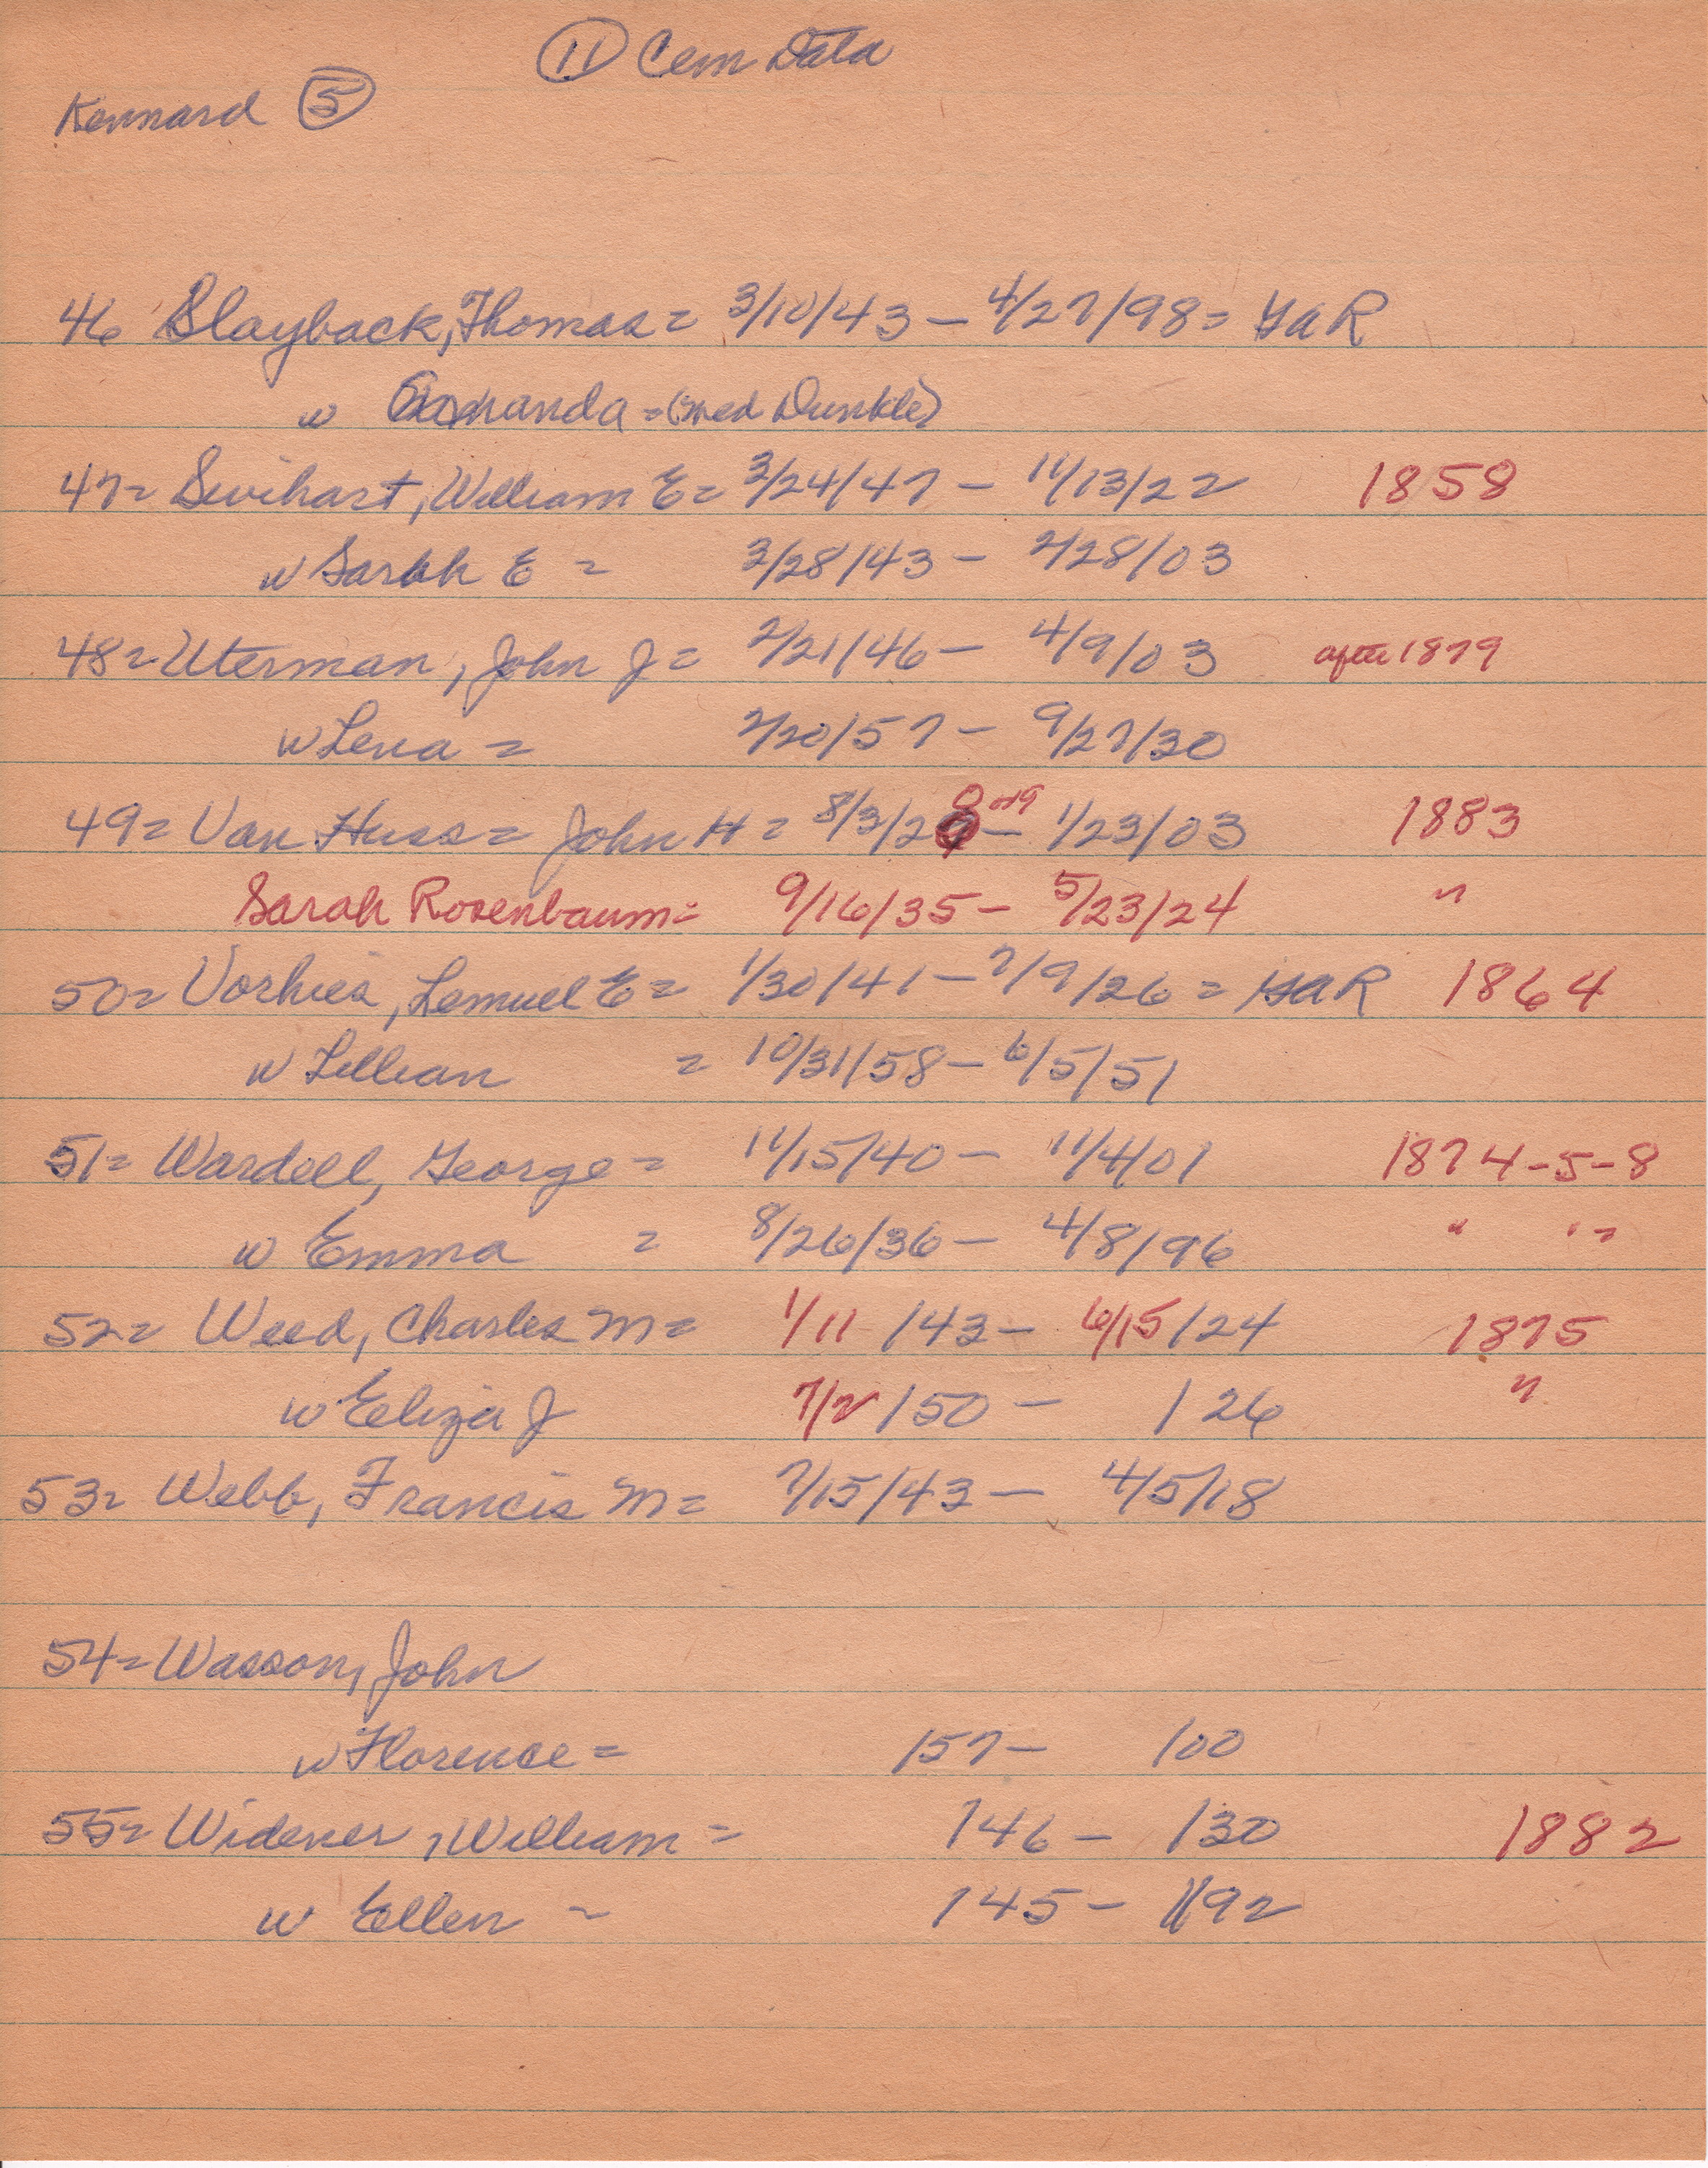 ⑪ Cem Data
Kennard ⑤
46 Slayback, Thomas = 3/10/43 - 4/27/98 = GAR
w Amanda = (med Dunkle)
47 = Swihart, William E = 3/24/47 - 11/13/22 1858
w Sarah E = 3/28/43 - 2/28/03
48 = Uterman, John J = 2/21/46 - 4/9/03 after 1879
w Lena = 2/20/57 - 9/27/30
49 = Van Huss = John H = 8/3/28 or 9 - 1/23/03 1883
Sarah Rosenbaum = 9/16/35 - 5/23/24 "
50 = Vorhies, Lemuel E = 1/30/41 - 7/9/26 = GAR 1864
w Lillian = 10/31/58 - 6/5/51
51 = Wardell, George = 11/15/40 - 11/4/01 1874-5-8
w Emma = 8/26/36 - 4/8/96 " "
52 = Weed, Charles M = 1/11/43 - 6/15/24 1875
w Eliza J 7/2/50 - /26 "
53 = Webb, Francis M = 7/15/43 - 4/5/18
54 = Wasson, John
w Florence = /57 - /00
55 = Widener, William = /46 - /30 1882
w Ellen = /45 - /92